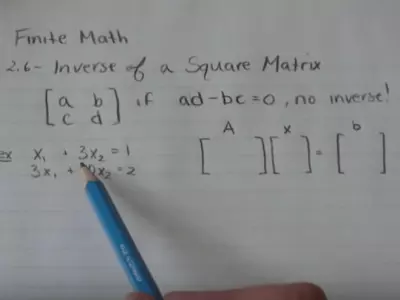 Finite Math
2.6 - Inverse of a Square Matrix
[a b
c d] if ad - bc = 0, no inverse!
A x b
[ ] [ ] = [ ]
ex x₁ + 3x₂ = 1
3x₁ + 0x₂ = 2